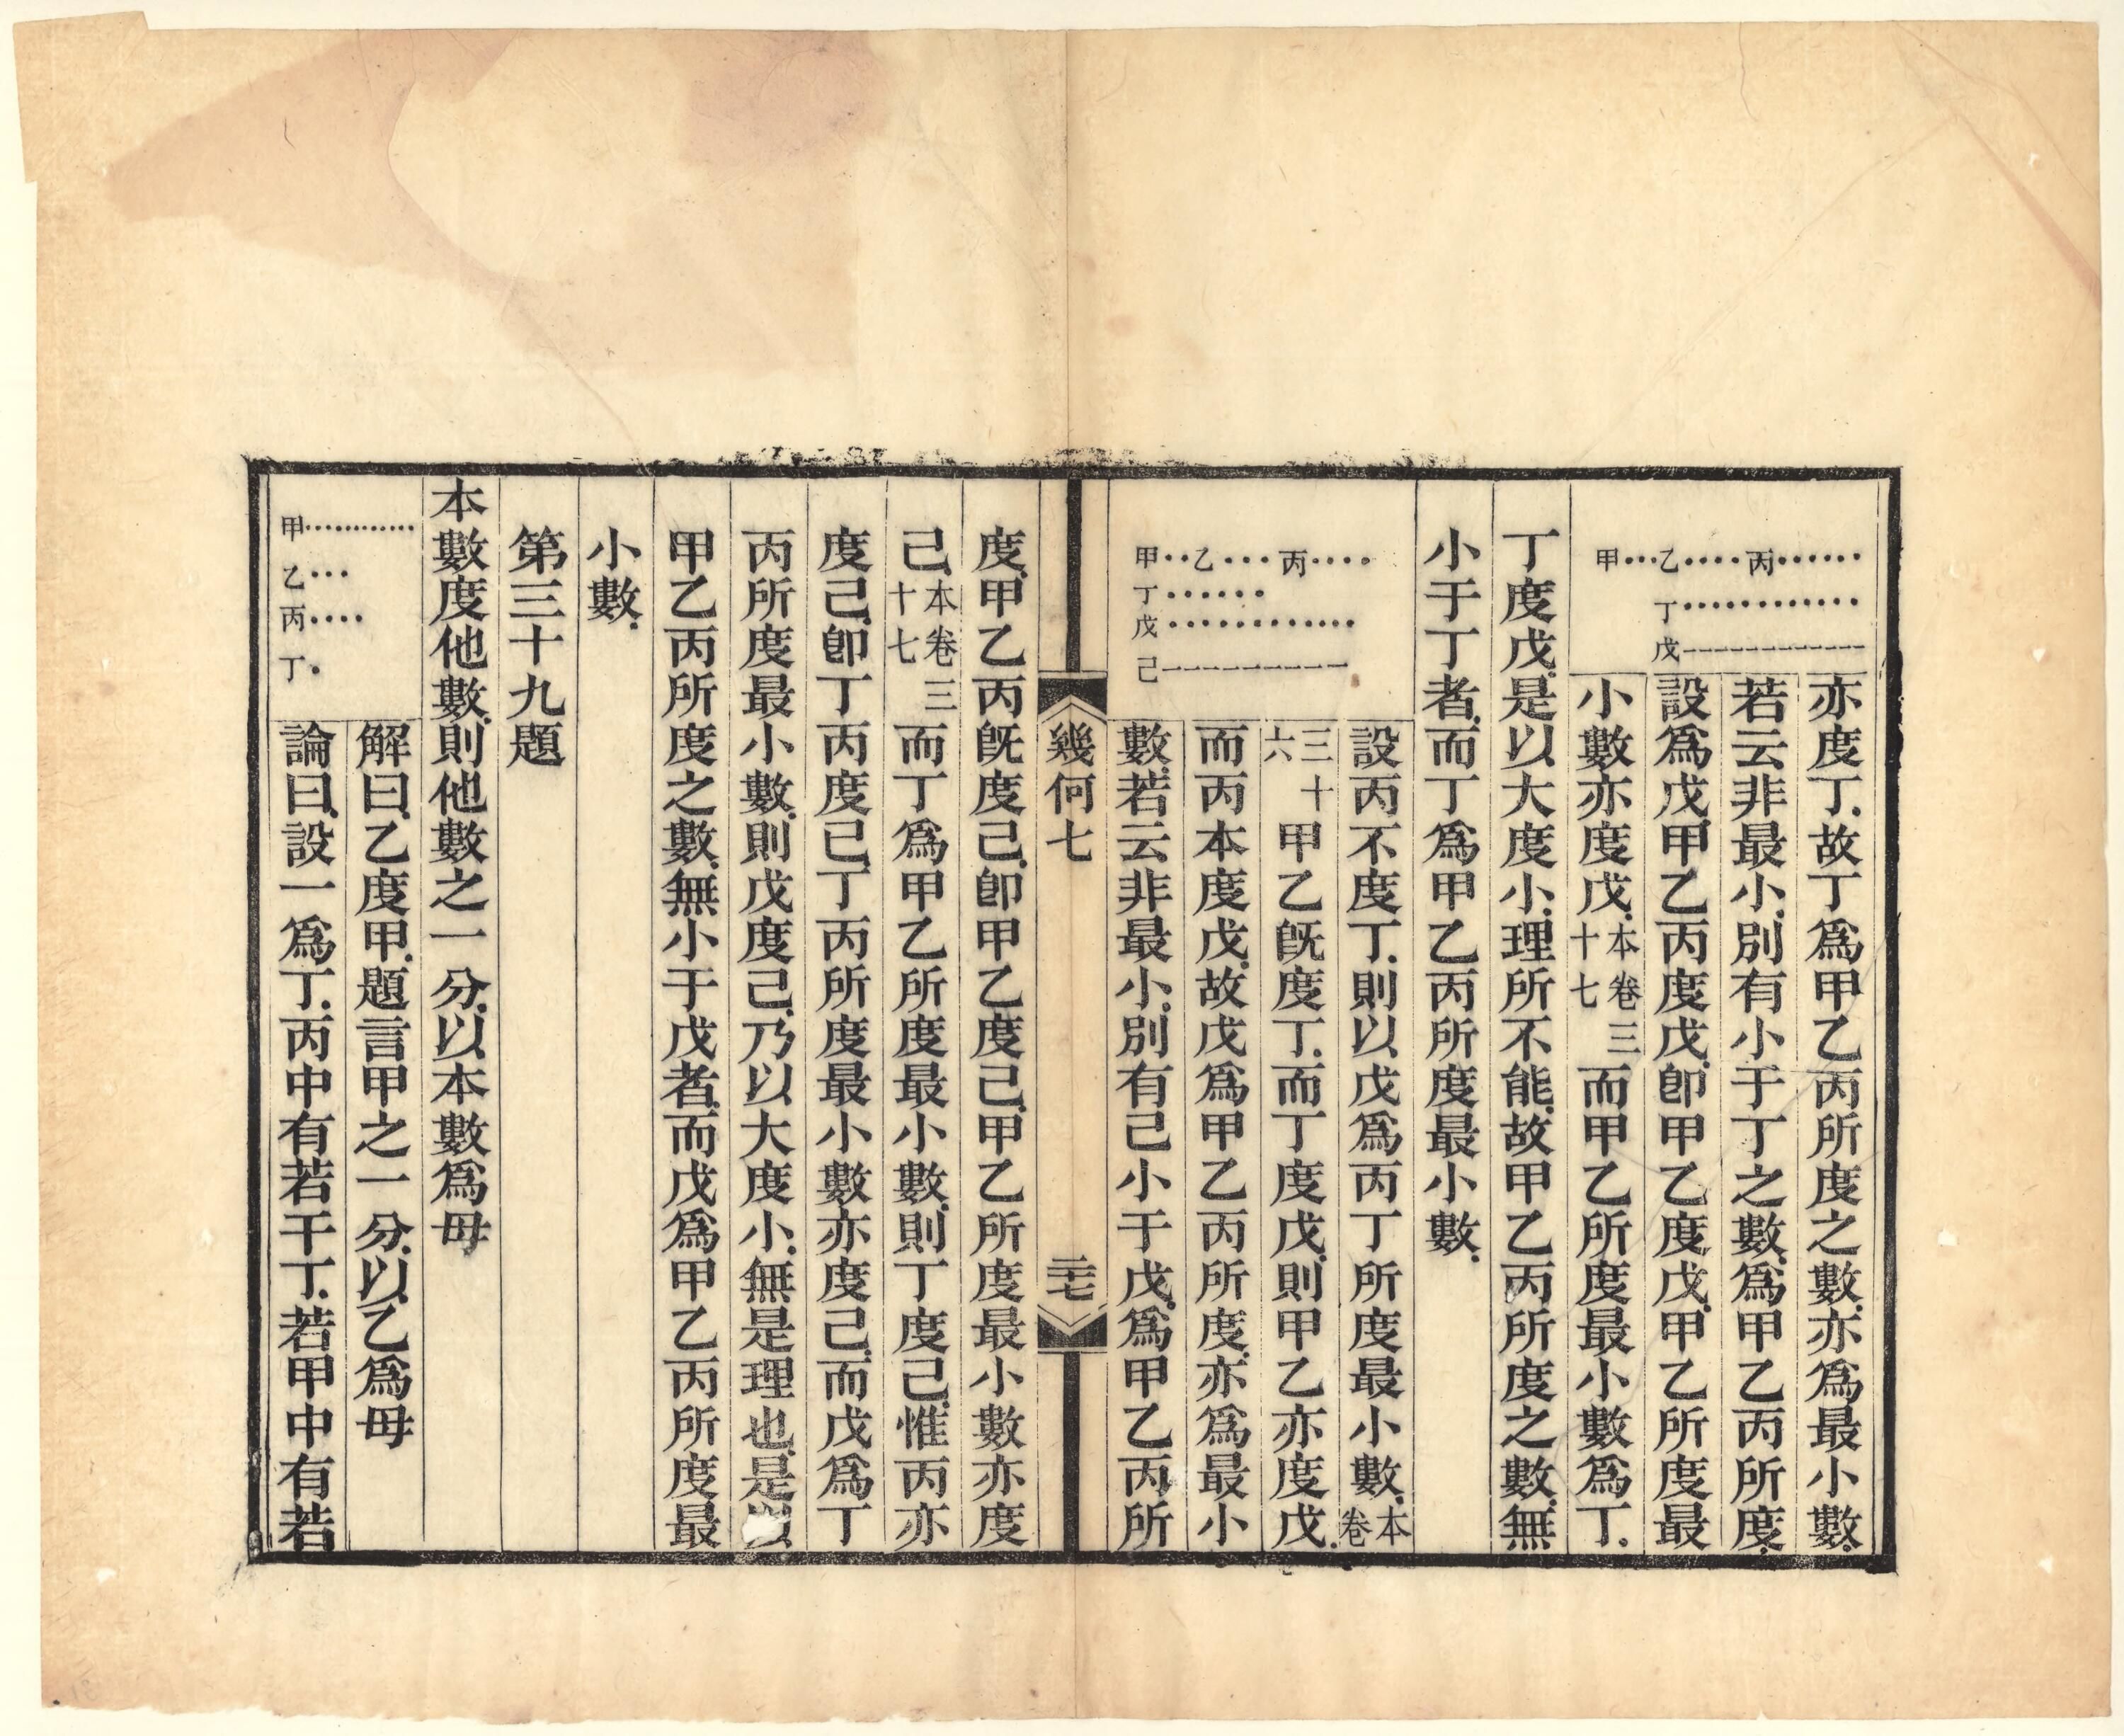 甲乙丙
丁
戊
亦度丁.故丁爲甲乙丙所度之數.亦爲最小數.
若云非最小.別有小于丁之數.爲甲乙丙所度.
設爲戊.甲乙丙度戊.卽甲乙度戊.甲乙所度最
小數亦度戊.本卷三十七而甲乙所度最小數爲丁.
丁度戊.是以大度小.理所不能.故甲乙丙所度之數.無
小于丁者.而丁爲甲乙丙所度最小數.
甲乙丙
丁
戊
己
設丙不度丁.則以戊爲丙丁所度最小數.本卷
三十六甲乙旣度丁.而丁度戊.則甲乙亦度戊.
而丙本度戊.故戊爲甲乙丙所度.亦爲最小
數.若云非最小.別有己小于戊.爲甲乙丙所
幾何七
三七
度.甲乙丙旣度己.卽甲乙度己.甲乙所度最小數亦度
己.本卷三十七而丁爲甲乙所度最小數.則丁度己.惟丙亦
度己.卽丁丙度己.丁丙所度最小數亦度己.而戊爲丁
丙所度最小數.則戊度己.乃以大度小.無是理也.是
甲乙丙所度之數.無小于戊者.而戊爲甲乙丙所度最
小數.
第三十九題
本數度他數.則他數之一分.以本數爲母
解曰.乙度甲.題言甲之一分.以乙爲母
甲
乙
丙
丁
論曰.設一爲丁.丙中有若干丁.若甲中有若